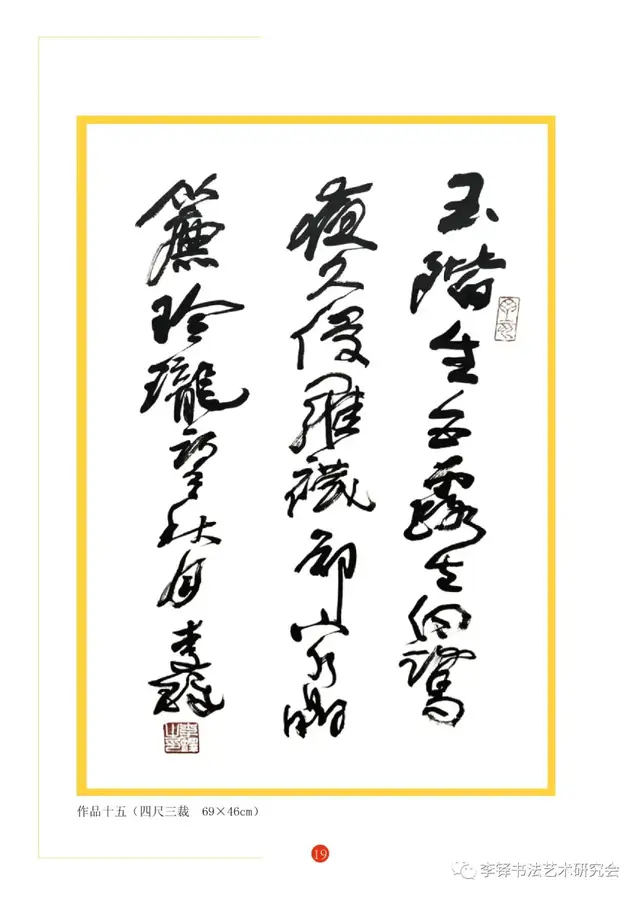 玉階生白露
夜久侵羅襪却
簾玲瓏望秋月 李鐸
作品十五（四尺三裁 69×46cm）
19
李铎书法艺术研究会